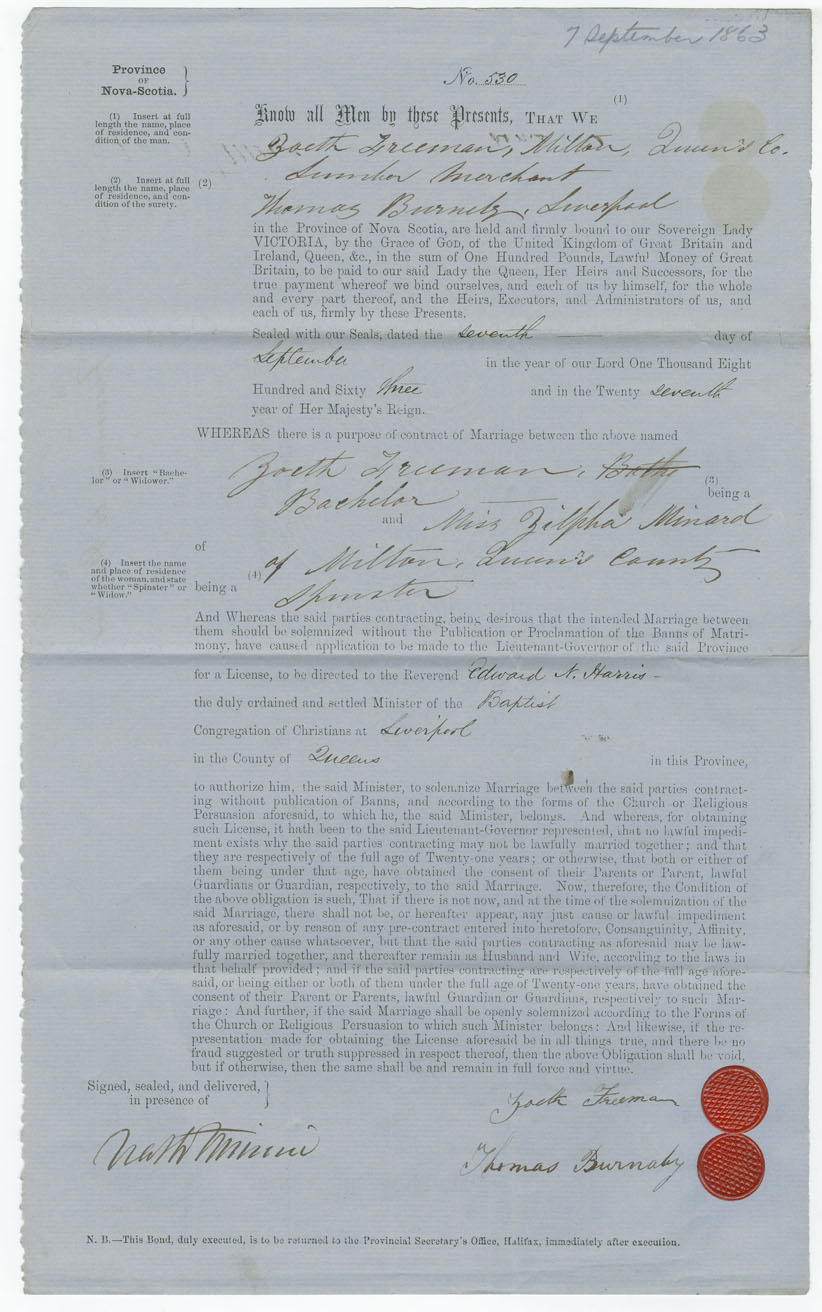 7 September 1863
Province
OF
Nova-Scotia.
No. 530
(1)
Know all Men by these Presents, THAT WE
(1) Insert at full
length the name, place
of residence, and con-
dition of the man.
Zoeth Freeman, Milton, Queen's Co.
Lumber Merchant
(2) Insert at full
length the name, place
of residence, and con-
dition of the surety.
(2)
Thomas Burnaby, Liverpool
in the Province of Nova Scotia, are held and firmly bound to our Sovereign Lady
VICTORIA, by the Grace of GOD, of the United Kingdom of Great Britain and
Ireland, Queen, &c., in the sum of One Hundred Pounds, Lawful Money of Great
Britain, to be paid to our said Lady the Queen, Her Heirs and Successors, for the
true payment whereof we bind ourselves, and each of us by himself, for the whole
and every part thereof, and the Heirs, Executors, and Administrators of us, and
each of us, firmly by these Presents.
Sealed with our Seals, dated the seventh day of
September in the year of our Lord One Thousand Eight
Hundred and Sixty three and in the Twenty seventh
year of Her Majesty's Reign.
WHEREAS there is a purpose of contract of Marriage between the above named
(3) Insert "Bache-
lor" or "Widower."
Zoeth Freeman,
(3)
Bachelor being a
and Miss Zilpha Minard
of
(4) Insert the name
and place of residence
of the woman, and state
whether "Spinster" or
"Widow."
(4) of Milton, Queen's County
being a Spinster
And Whereas the said parties contracting, being desirous that the intended Marriage between
them should be solemnized without the Publication or Proclamation of the Banns of Matri-
mony, have caused application to be made to the Lieutenant-Governor of the said Province
for a License, to be directed to the Reverend Edward N. Harris -
the duly ordained and settled Minister of the Baptist
Congregation of Christians at Liverpool
in the County of Queens in this Province,
to authorize him, the said Minister, to solemnize Marriage between the said parties contract-
ing without publication of Banns, and according to the forms of the Church or Religious
Persuasion aforesaid, to which he, the said Minister, belongs. And whereas, for obtaining
such License, it hath been to the said Lieutenant-Governor represented, that no lawful impedi-
ment exists why the said parties contracting may not be lawfully married together; and that
they are respectively of the full age of Twenty-one years; or otherwise, that both or either of
them being under that age, have obtained the consent of their Parents or Parent, lawful
Guardians or Guardian, respectively, to the said Marriage. Now, therefore, the Condition of
the above obligation is such, That if there is not now, and at the time of the solemnization of the
said Marriage, there shall not be, or hereafter appear, any just cause or lawful impediment
as aforesaid, or by reason of any pre-contract entered into heretofore, Consanguinity, Affinity,
or any other cause whatsoever, but that the said parties contracting as aforesaid may be law-
fully married together, and thereafter remain as Husband and Wife, according to the laws in
that behalf provided; and if the said parties contracting are respectively of the full age afore-
said, or being either or both of them under the full age of Twenty-one years, have obtained the
consent of their Parent or Parents, lawful Guardian or Guardians, respectively to such Mar-
riage: And further, if the said Marriage shall be openly solemnized according to the Forms of
the Church or Religious Persuasion to which such Minister belongs: And likewise, if the re-
presentation made for obtaining the License aforesaid be in all things true, and there be no
fraud suggested or truth suppressed in respect thereof, then the above Obligation shall be void,
but if otherwise, then the same shall be and remain in full force and virtue.
Signed, sealed, and delivered,
in presence of
Zoeth Freeman
Thomas Burnaby
N. B.—This Bond, duly executed, is to be returned to the Provincial Secretary's Office, Halifax, immediately after execution.